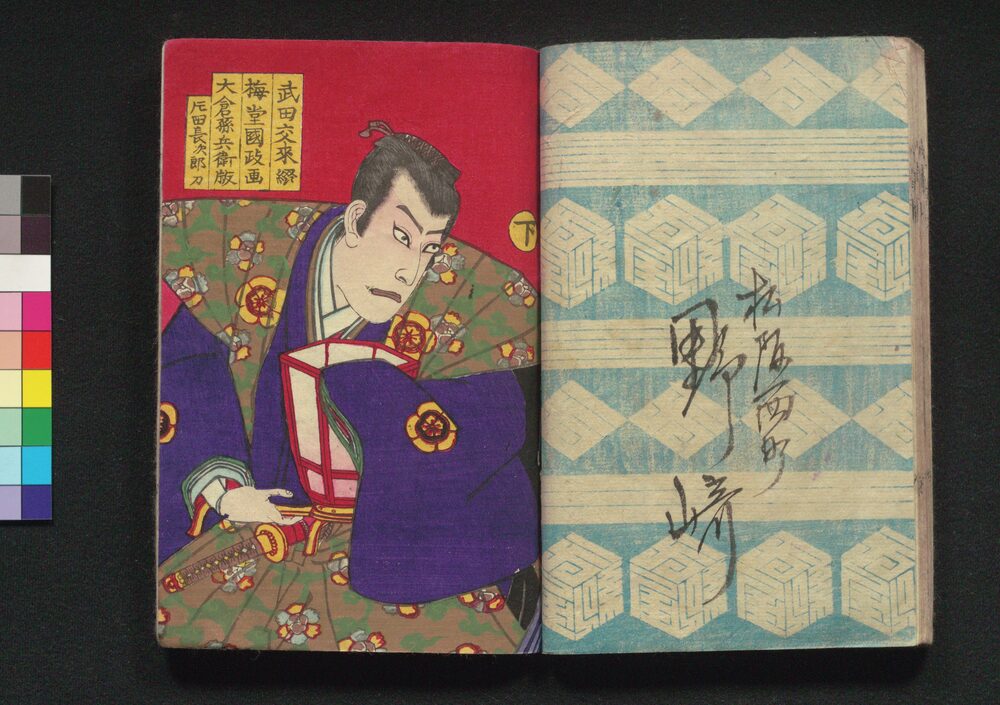 武田交來綴
梅堂國政画
大倉孫兵衛版
片田長次郎刀
下
松阪西町
野﨑